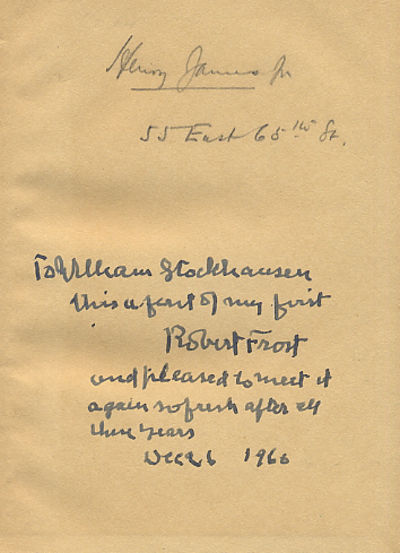 Henry James Jr
55 East 65th St.
To William Stockhausen
this a first of my first
Robert Frost
and pleased to meet it
again so fresh after all
these years
Dec 6 1960